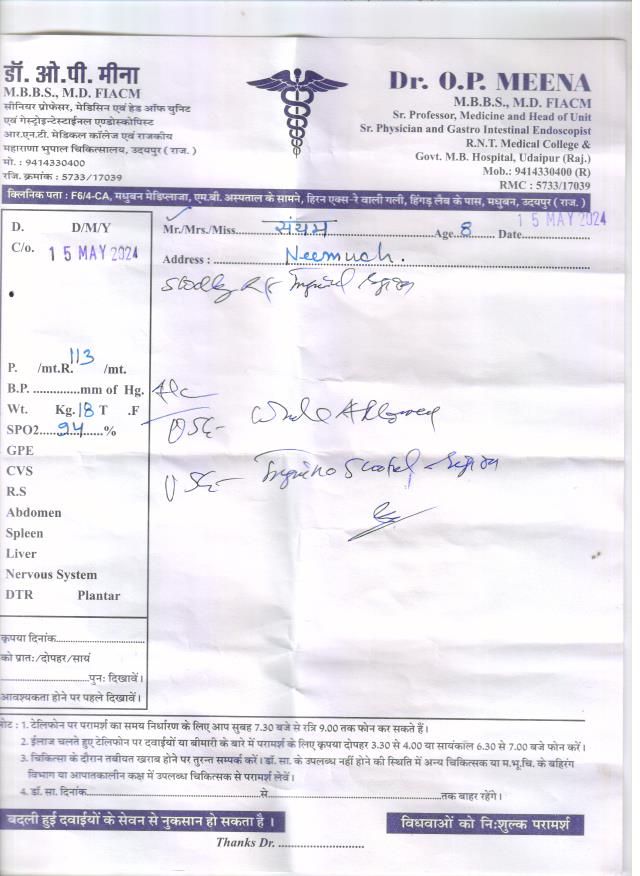 डॉ. ओ.पी. मीना
M.B.B.S., M.D. FIACM
सीनियर प्रोफेसर, मेडिसिन एवं हेड ऑफ युनिट
एवं गेस्ट्रोइन्टेस्टाईनल एण्डोस्कोपिस्ट
आर.एन.टी. मेडिकल कॉलेज एवं राजकीय
महाराणा भुपाल चिकित्सालय, उदयपुर ( राज. )
मो. : 9414330400
रजि. क्रमांक : 5733/17039
Dr. O.P. MEENA
M.B.B.S., M.D. FIACM
Sr. Professor, Medicine and Head of Unit
Sr. Physician and Gastro Intestinal Endoscopist
R.N.T. Medical College &
Govt. M.B. Hospital, Udaipur (Raj.)
Mob.: 9414330400 (R)
RMC : 5733/17039
क्लिनिक पता : F6/4-CA, मधुबन मेडिप्लाजा, एम.बी. अस्पताल के सामने, हिरन एक्स-रे वाली गली, हिंगड़ लैब के पास, मधुबन, उदयपुर ( राज. )
D. D/M/Y
C/o. 15 MAY 2024
Mr./Mrs./Miss. संयम Age. 8 Date 15 MAY 2024
Address : Neemuch.
Inguinal Region
P. /mt.R. 113 /mt.
B.P. ..............mm of Hg.
Wt. Kg. 18 T .F
SPO2. 94 %
GPE
CVS
R.S
Abdomen
Spleen
Liver
Nervous System
DTR Plantar
USG- Whole Abdomen
USG- Inguino Scrotal Region
कृपया दिनांक
को प्रातः/दोपहर/सायं
पुनः दिखावें।
आवश्यकता होने पर पहले दिखावें।
नोट : 1. टेलिफोन पर परामर्श का समय निर्धारण के लिए आप सुबह 7.30 बजे से रात्रि 9.00 तक फोन कर सकते हैं।
2. ईलाज चलते हुए टेलिफोन पर दवाईयों या बीमारी के बारे में परामर्श के लिए कृपया दोपहर 3.30 से 4.00 या सायंकाल 6.30 से 7.00 बजे फोन करें।
3. चिकित्सा के दौरान तबीयत खराब होने पर तुरन्त सम्पर्क करें। डॉ. सा. के उपलब्ध नहीं होने की स्थिति में अन्य चिकित्सक या म.भू.चि. के बहिरंग
विभाग या आपातकालीन कक्ष में उपलब्ध चिकित्सक से परामर्श लेवें।
4. डॉ. सा. दिनांक से तक बाहर रहेंगे।
बदली हुई दवाईयों के सेवन से नुकसान हो सकता है।
विधवाओं को निःशुल्क परामर्श
Thanks Dr. ........................